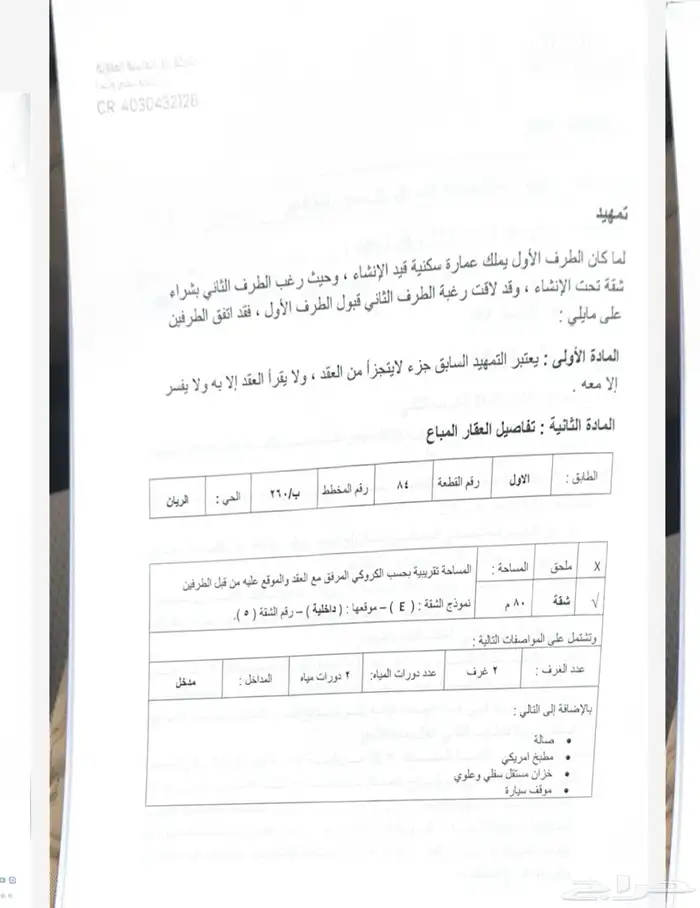 CR 4030432128
تمهيد
لما كان الطرف الأول يملك عمارة سكنية قيد الإنشاء ، وحيث رغب الطرف الثاني بشراء
شقة تحت الإنشاء ، وقد لاقت رغبة الطرف الثاني قبول الطرف الأول ، فقد اتفق الطرفين
على مايلي :
المادة الأولى : يعتبر التمهيد السابق جزء لايتجزأ من العقد ، ولا يقرأ العقد إلا به ولا يفسر
إلا معه .
المادة الثانية : تفاصيل العقار المباع
الطابق : الاول رقم القطعة ٨٤ رقم المخطط ٢٦٠/ب الحي : الريان
X ملحق المساحة : المساحة تقريبية بحسب الكروكي المرفق مع العقد والموقع عليه من قبل الطرفين
√ شقة ٨٠ م نموذج الشقة : ( E ) – موقعها : ( داخلية ) – رقم الشقة ( ٥ ).
وتشتمل على المواصفات التالية :
عدد الغرف : ٢ غرف عدد دورات المياه: ٢ دورات مياه المداخل : مدخل
بالإضافة إلى التالي :
• صالة
• مطبخ امريكي
• خزان مستقل سفلي وعلوي
• موقف سيارة
حراج